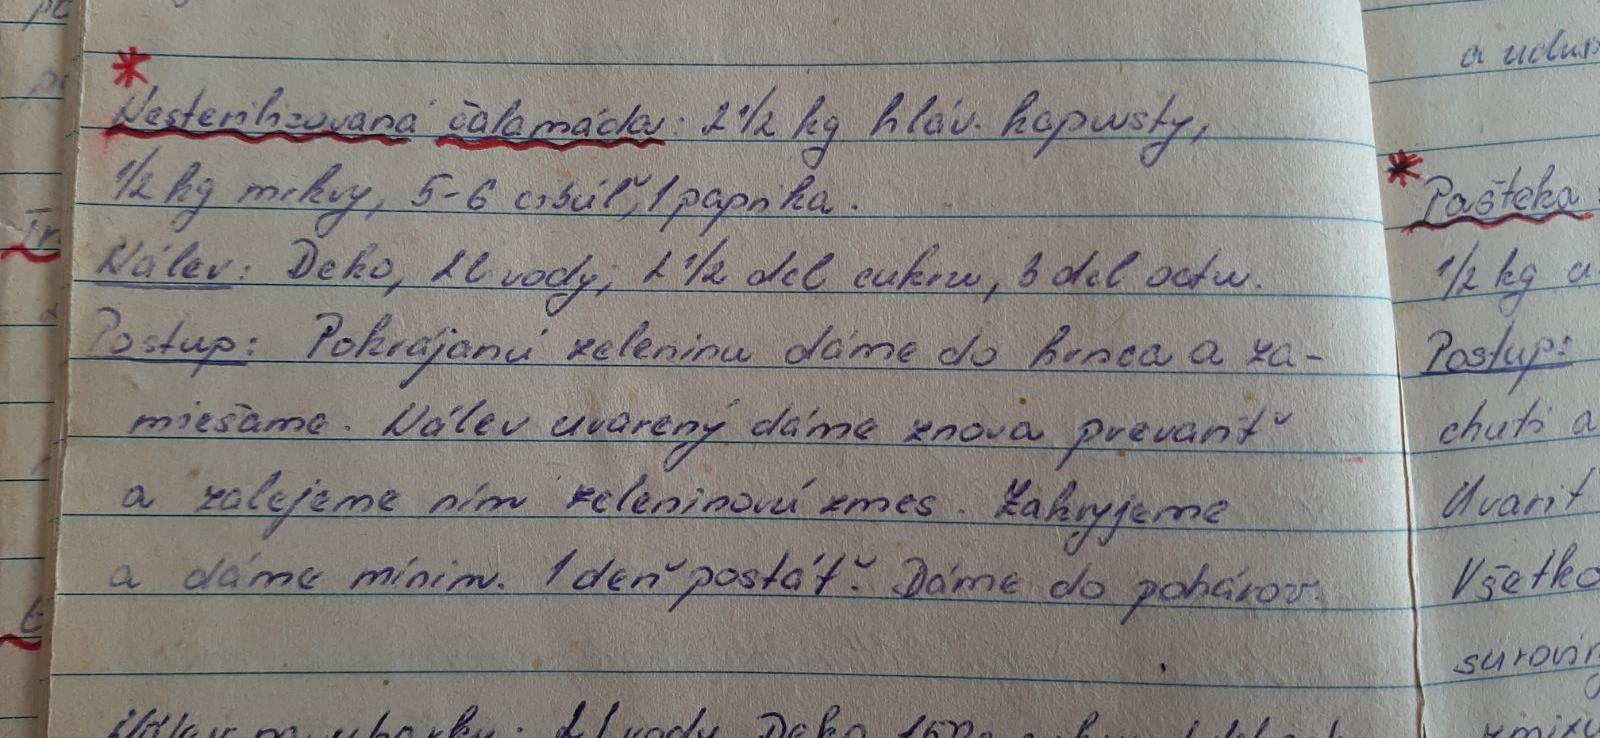 Nesterilizovaná čalamáda: 2 1/2 kg hláv. kapusty,
1/2 kg mrkvy, 5-6 cibúľ, 1 paprika.
Nálev: Deko, 2l vody, 2 1/2 dcl cukru, 3 dcl octu.
Postup: Pokrájanú zeleninu dáme do hrnca a za-
miešame. Nálev uvarený dáme znova prevariť
a zalejeme ním zeleninovú zmes. Zakryjeme
a dáme minim. 1 deň postáť. Dáme do pohárov.
vody, Deko
Pašteka:
1/2 kg
Postup:
chuti a
Uvariť
Všetko